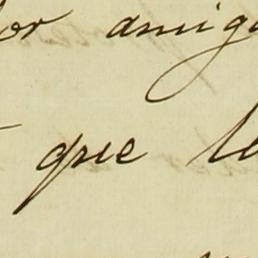 or amig
que le